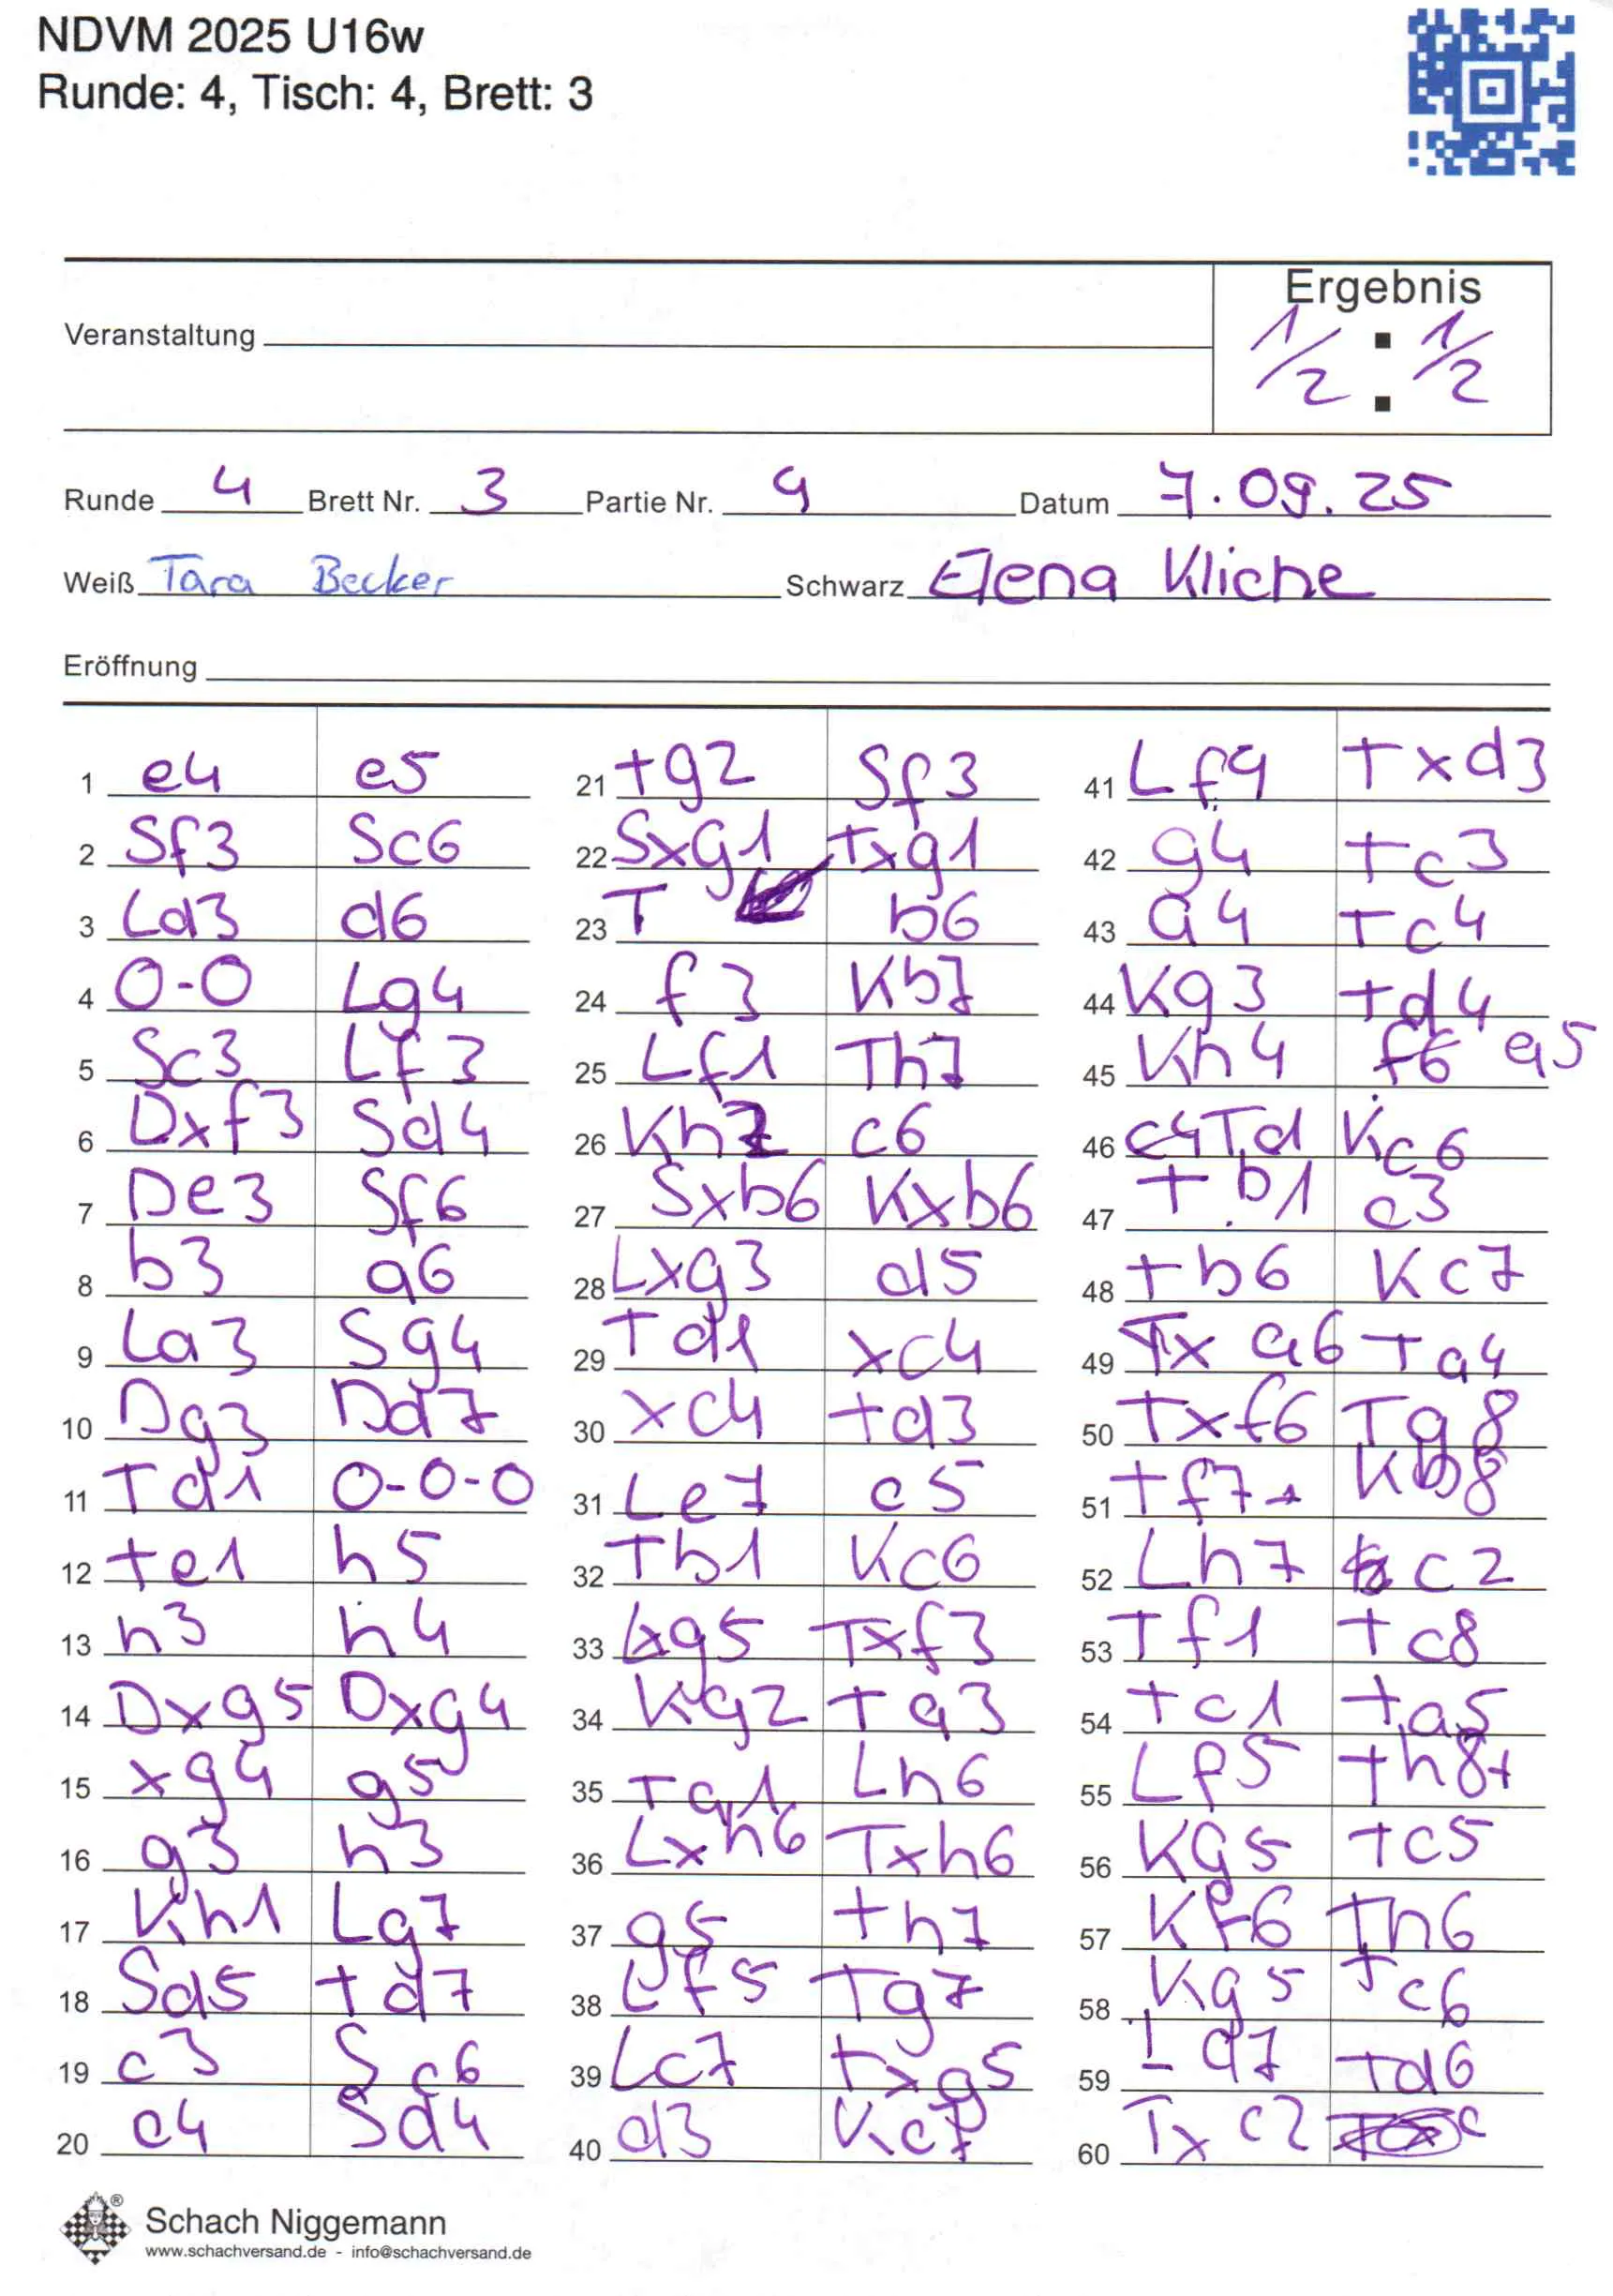 NDVM 2025 U16w
Runde: 4, Tisch: 4, Brett: 3
Ergebnis
Veranstaltung
1/2 : 1/2
Runde 4 Brett Nr. 3 Partie Nr. 9 Datum 7.09.25
Weiß Tara Becker Schwarz Elena Kliche
Eröffnung
1 e4 e5
2 Sf3 Sc6
3 Ld3 d6
4 0-0 Lg4
5 Sc3 Lf3
6 Dxf3 Sd4
7 De3 Sf6
8 b3 a6
9 La3 Sg4
10 Dg3 Dd7
11 Td1 0-0-0
12 te1 h5
13 h3 h4
14 Dxg5 Dxg4
15 xg4 g5
16 g3 h3
17 Kh1 Lg7
18 Sd5 td7
19 c3 Sc6
20 c4 Sd4
21 tg2 Sf3
22 Sxg1 Txg1
23 T b6
24 f3 Kb7
25 Lf1 Th7
26 Kh2 c6
27 Sxb6 Kxb6
28 Lxg3 d5
29 Td1 xc4
30 xc4 td3
31 Le7 c5
32 Tb1 Kc6
33 Lxg5 Txf3
34 Kg2 Ta3
35 Tg1 Lh6
36 Lxh6 Txh6
37 g5 th7
38 Lf5 Tg7
39 Lc7 txg5
40 d3 Kc7
41 Lf4 Txd3
42 g4 tc3
43 a4 Tc4
44 Kg3 td4
45 Kh4 f6 a5
46 c4 Td Kc6
47 tb1 c3
48 tb6 Kc7
49 Tx a6 Ta4
50 Txf6 Tg8
51 tf7+ Kb8
52 Lh7 c2
53 Tf1 tc8
54 tc1 ta5
55 Lf5 th8+
56 Kg5 tc5
57 Kf6 Th6
58 Kg5 Tc6
59 d7 td6
60 Tx c2
Schach Niggemann
www.schachversand.de - info@schachversand.de